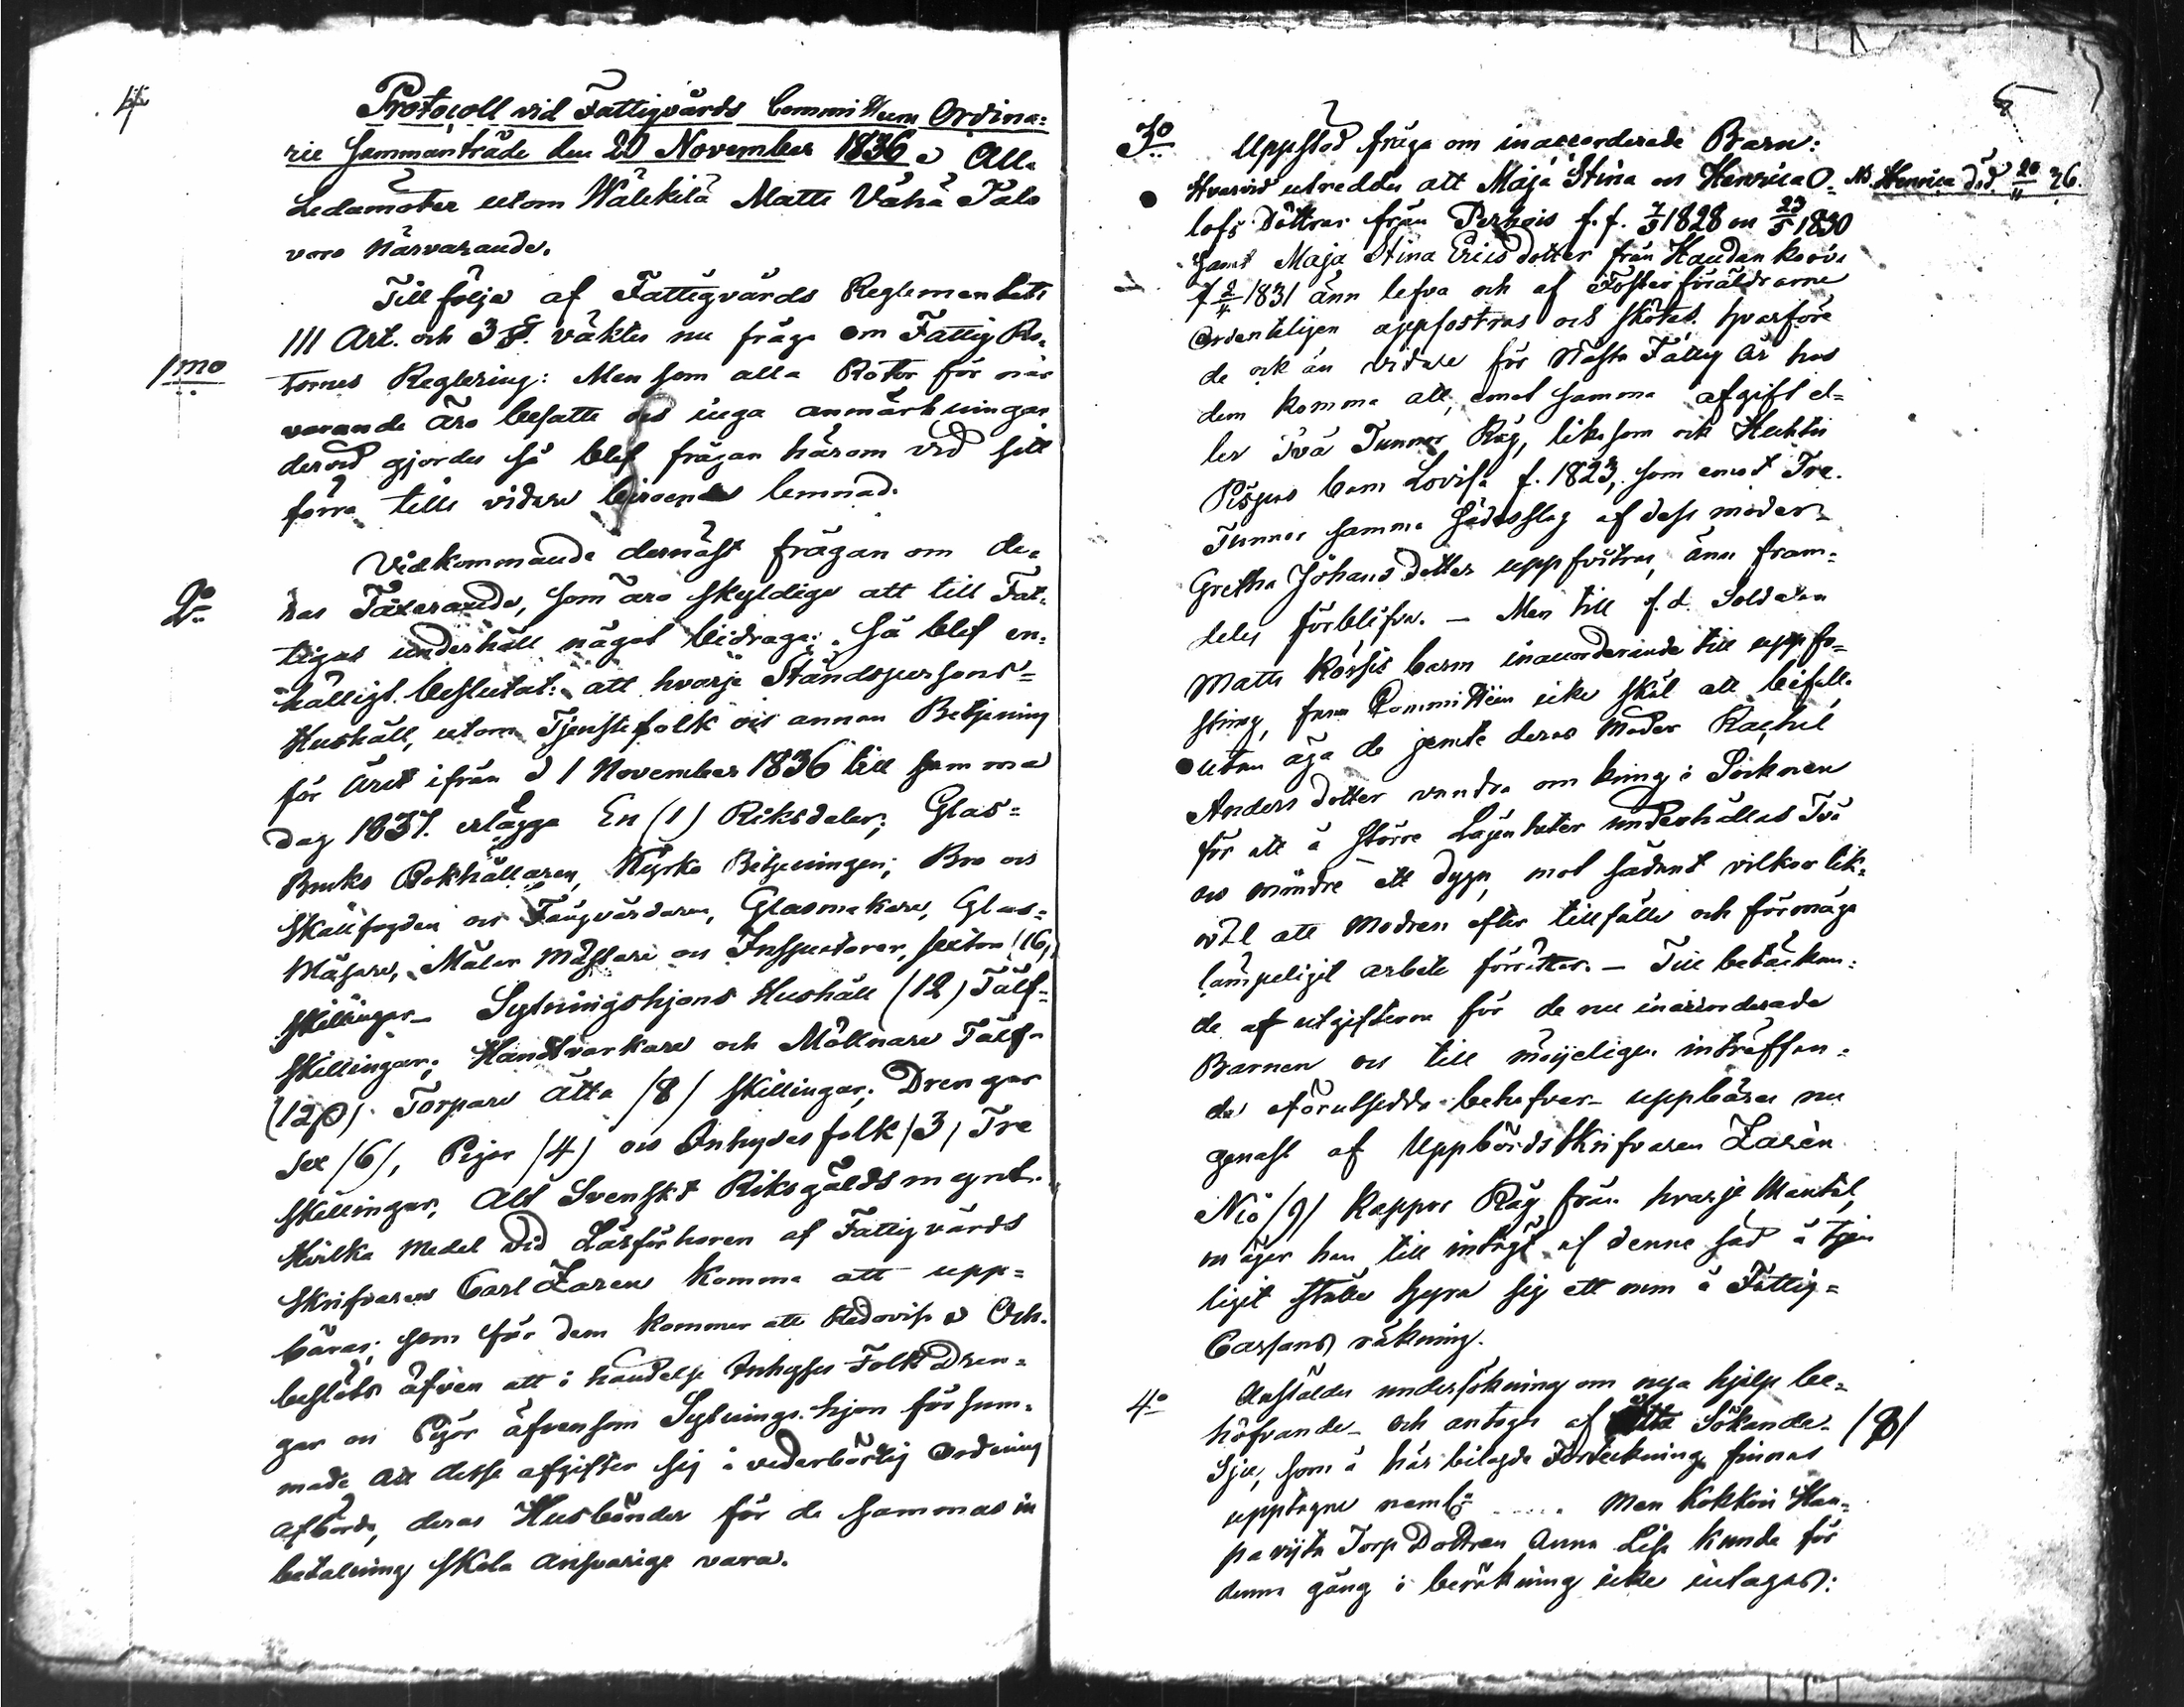 4
Protocoll vid Fattigvårds Committeens Ordina=
rie Sammanträde den 20 November 1836. Alla
Ledamöter utom Wälikilä Matts Vähä Talo
voro närvarande.
Till följe af Fattigvårds Reglementets
III Art. och 3 §. väktes nu fråga om Fattig Ro=
1mo
tornes Reglering: Men som alla Rotor för när
varande äro besatte och inga anmärkningar
dervid gjordes så blef frågan härom vid sitt
förra tills vidare beroende lemnad.
Vidkommande dernäst frågan om de=
2o
ras Taxerande, som äro skyldige att till Fat=
tigas underhåll något bidraga: Så blef en=
hälligt beslutat: att hvarje Ståndspersons=
Hushåll, utom Tjenstefolk och annan Betjening
för Året ifrån d 1 November 1836 till samma
dag 1837. erlägga En (1) Riksdaler; Glas=
Bruks Bokhållaren, Kyrko Betjeningen, Bro och
Skallfogden och Fångvårdaren, Glasmakare, Glas=
Mäsare, Målar Mästare och Inspectorer, sexton (16)
Skillingar_ Sytningshjons Hushåll (12) Tålf=
Skillingar; Handtvarkare och Möllnare Tålf
(12) Torpare Åtta /8/ Skillingar; Drengar
Sex /6/, Pigor /4/ och Inhyses folk /3/ Tre
Skillingar, Allt Svenskt Riksgälds mynt.
Hvilka Medel vid Läsförhören af Fattigvårds
Skrifvaren Carl Zaren komma att upp=
bäras, som för dem kommer att Redovisa. Och
beslöts äfven att i händelse Inhyses Folk Dren=
gar och Pigor äfvensom Sytnings hjon försum=
made att desse afgifter sig i vederbörlig Ordning
afbörda, deras Husbönder för de sammas in
betalning skola ansvarige vara.
5
3o
Uppstod fråga om inaccorderade Barn:
Hvarvid utreddes att Maja Stina och Henrica O=
NB. Henrica död 20/11 36.
lofs Döttrar från Perhois f. f. 7/5 1828 och 23/5 1830
Samt Maja Stina Ericsdotter från Haudankorvi
f 2/4 1831 änn lefva och af Fosterföräldrarne
Ordenteligen uppfostras och skötas, hvarföre
de ock än vidare för Nästa Fattig År hos
dem komma att, emot samma afgift el=
ler Två Tunnor Råg, likasom ock Huhtis
barn Lovisa f. 1823, som emot Tre
Tunnor samma Sädesslag af dess moder
Gretha Johans dotter uppfostras, änn fram=
deles förblifva. — Men till f. d. Soldaten
Matts Körsis barns inaccorderande till uppfo=
string, fann Committéen icke skäl att bifalla
utan äga de jemte deras Moder Rachel
Anders dotter vandra omkring i Socknen
för att å större Lägenheter underhållas Två
och mindre ett dygn, mot sådant vilkor lik=
väl att Modren efter tillfälle och förmåga
lämpeligit arbete förrättar. — Till betäckan=
de af utgifterna för de nu inaccorderade
Barnen och till möijeligen inträffan=
de oförutsedda behofver uppbäres nu
genast af UppbördsSkrifvaren Zarén
Nio /9/ Kappor Råg från hvarje Mantal,
och äger han till intägt af denna säd å tjen
ligit ställe hyra sig ett rum å Fattig=
Cassans räkning.
4o
Anstäldes undersökning om nya hjelp be=
höfvande och antogs af Åtta Sökande /8/
Sju, som å här bilagde Förteckning finnas
upptagne neml: ..... Men Kokkoi Haa=
pavista Torp Dottren Anna Lisa kunde för
denna gång i beräkning icke intagas: